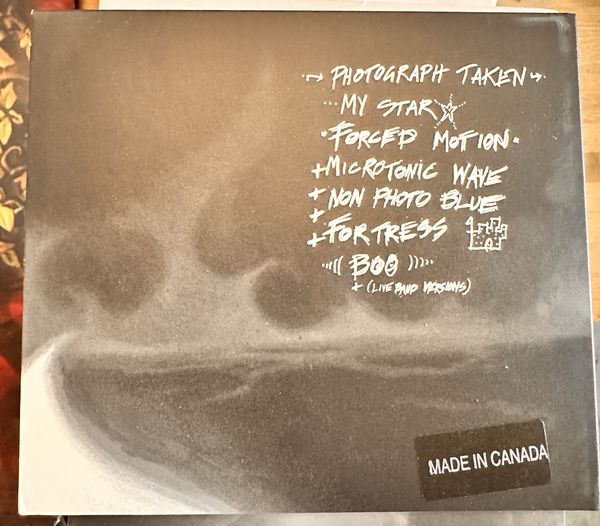 PHOTOGRAPH TAKEN
MY STAR
FORCED MOTION
MICROTONIC WAVE
NON PHOTO BLUE
FORTRESS
BOO
+ (LIVE BAND VERSIONS)
MADE IN CANADA